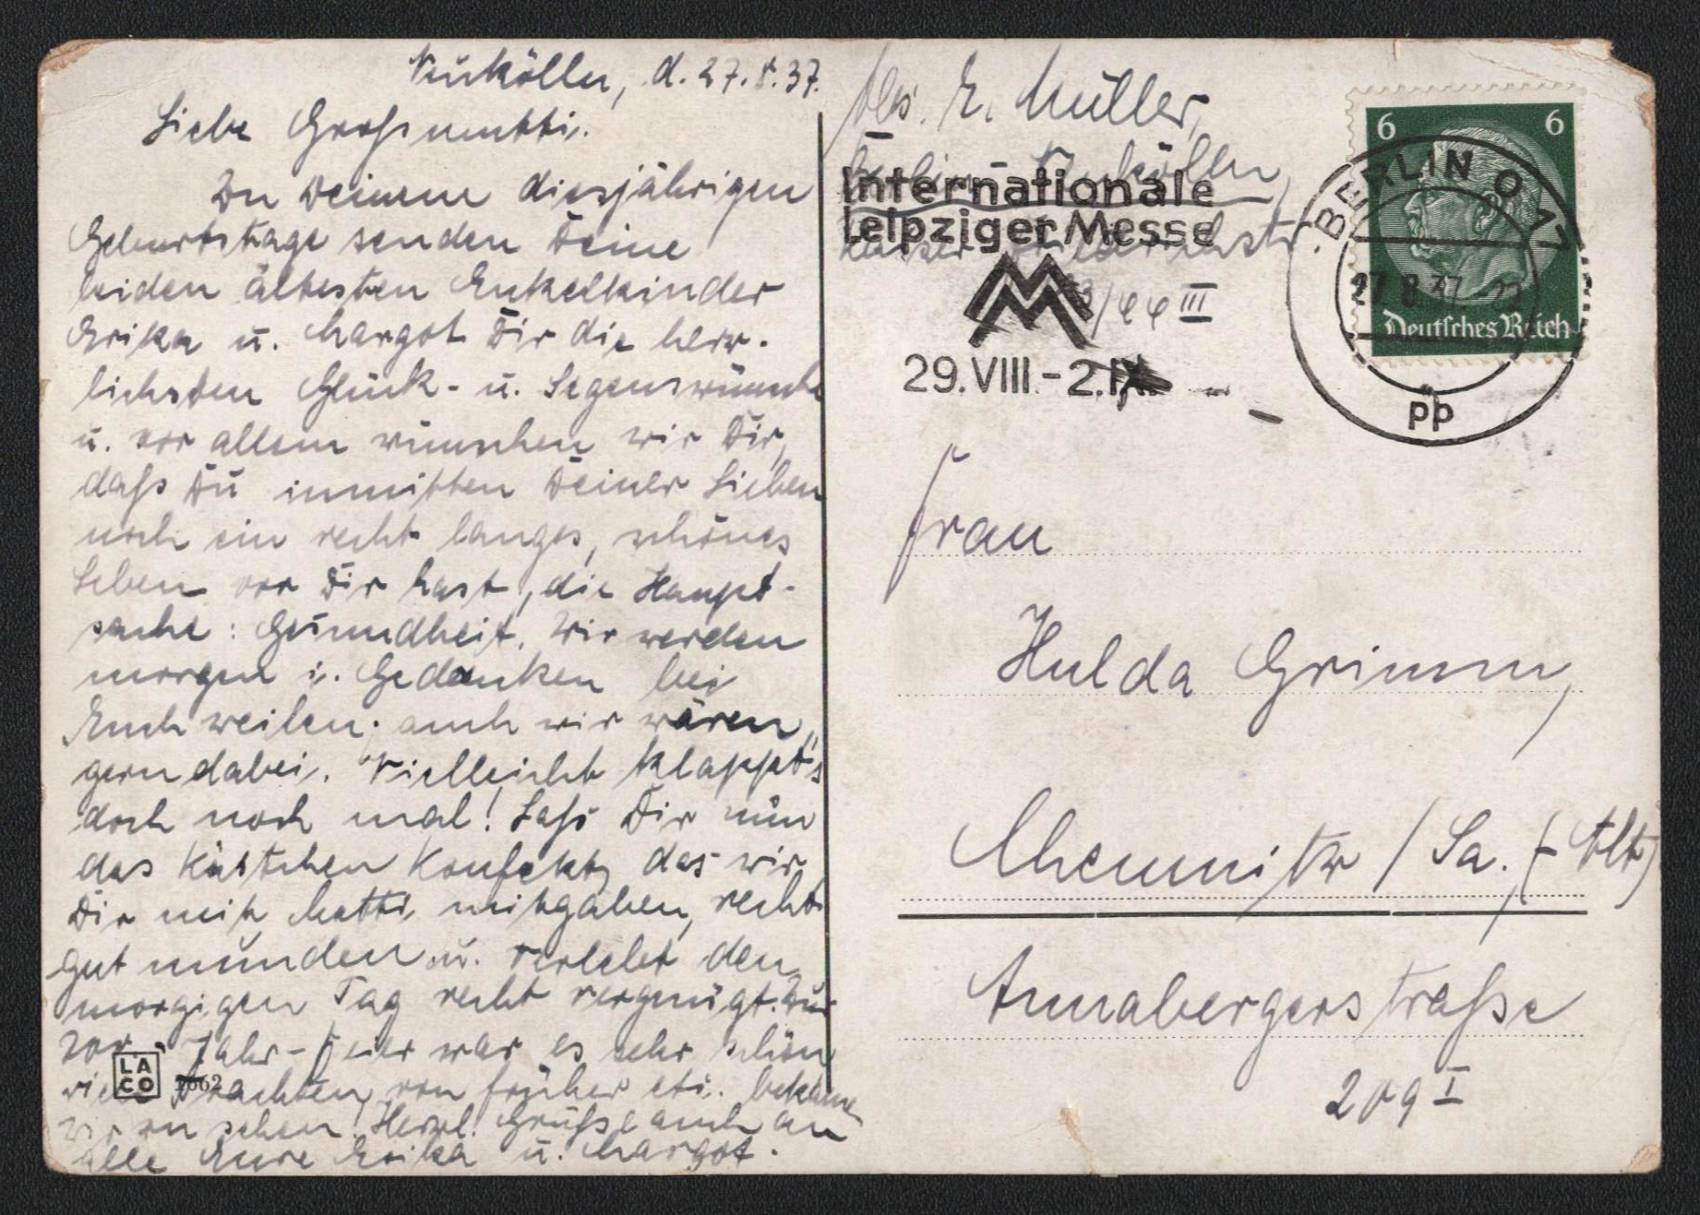 Neukölln, d. 27.8.37.
Liebe Großmutti.
Zu Deinem diesjährigen
Geburtstage senden Deine
beiden ältesten Enkelkinder
Erika u. Margot Dir die herz-
lichsten Glück- u. Segenswünsche
u. vor allem wünschen wir Dir,
daß Du inmitten Deiner Lieben
noch ein recht langes, schönes
Leben vor Dir hast, die Haupt-
sache: Gesundheit. Wir werden
morgen i. Gedanken bei
Euch weilen; auch wir wären
gern dabei. Vielleicht klappt's
doch noch mal! Laß Dir nun
das Kästchen Konfekt, das wir
Dir mit Mutti mitgaben, recht
gut munden u. verlebt den
morgigen Tag recht vergnügt. Zur
700 Jahr-Feier war es sehr schön
viel Trachten von früher etc. bekamen
wir zu sehen. Herzl. Grüße auch an
alle Eure Erika u. Margot.
LA
CO 2662
Abs. E. Müller,
Berlin-Neukölln,
Kaiser Friedrichstr.
III
Internationale
Leipziger Messe
MM
29.VIII.-2.IX.
6 6
Deutsches Reich
BERLIN O 17
27.8.37
pp
Frau
Hulda Grimm,
Chemnitz / Sa. (-Alt)
Annabergerstraße
209 I